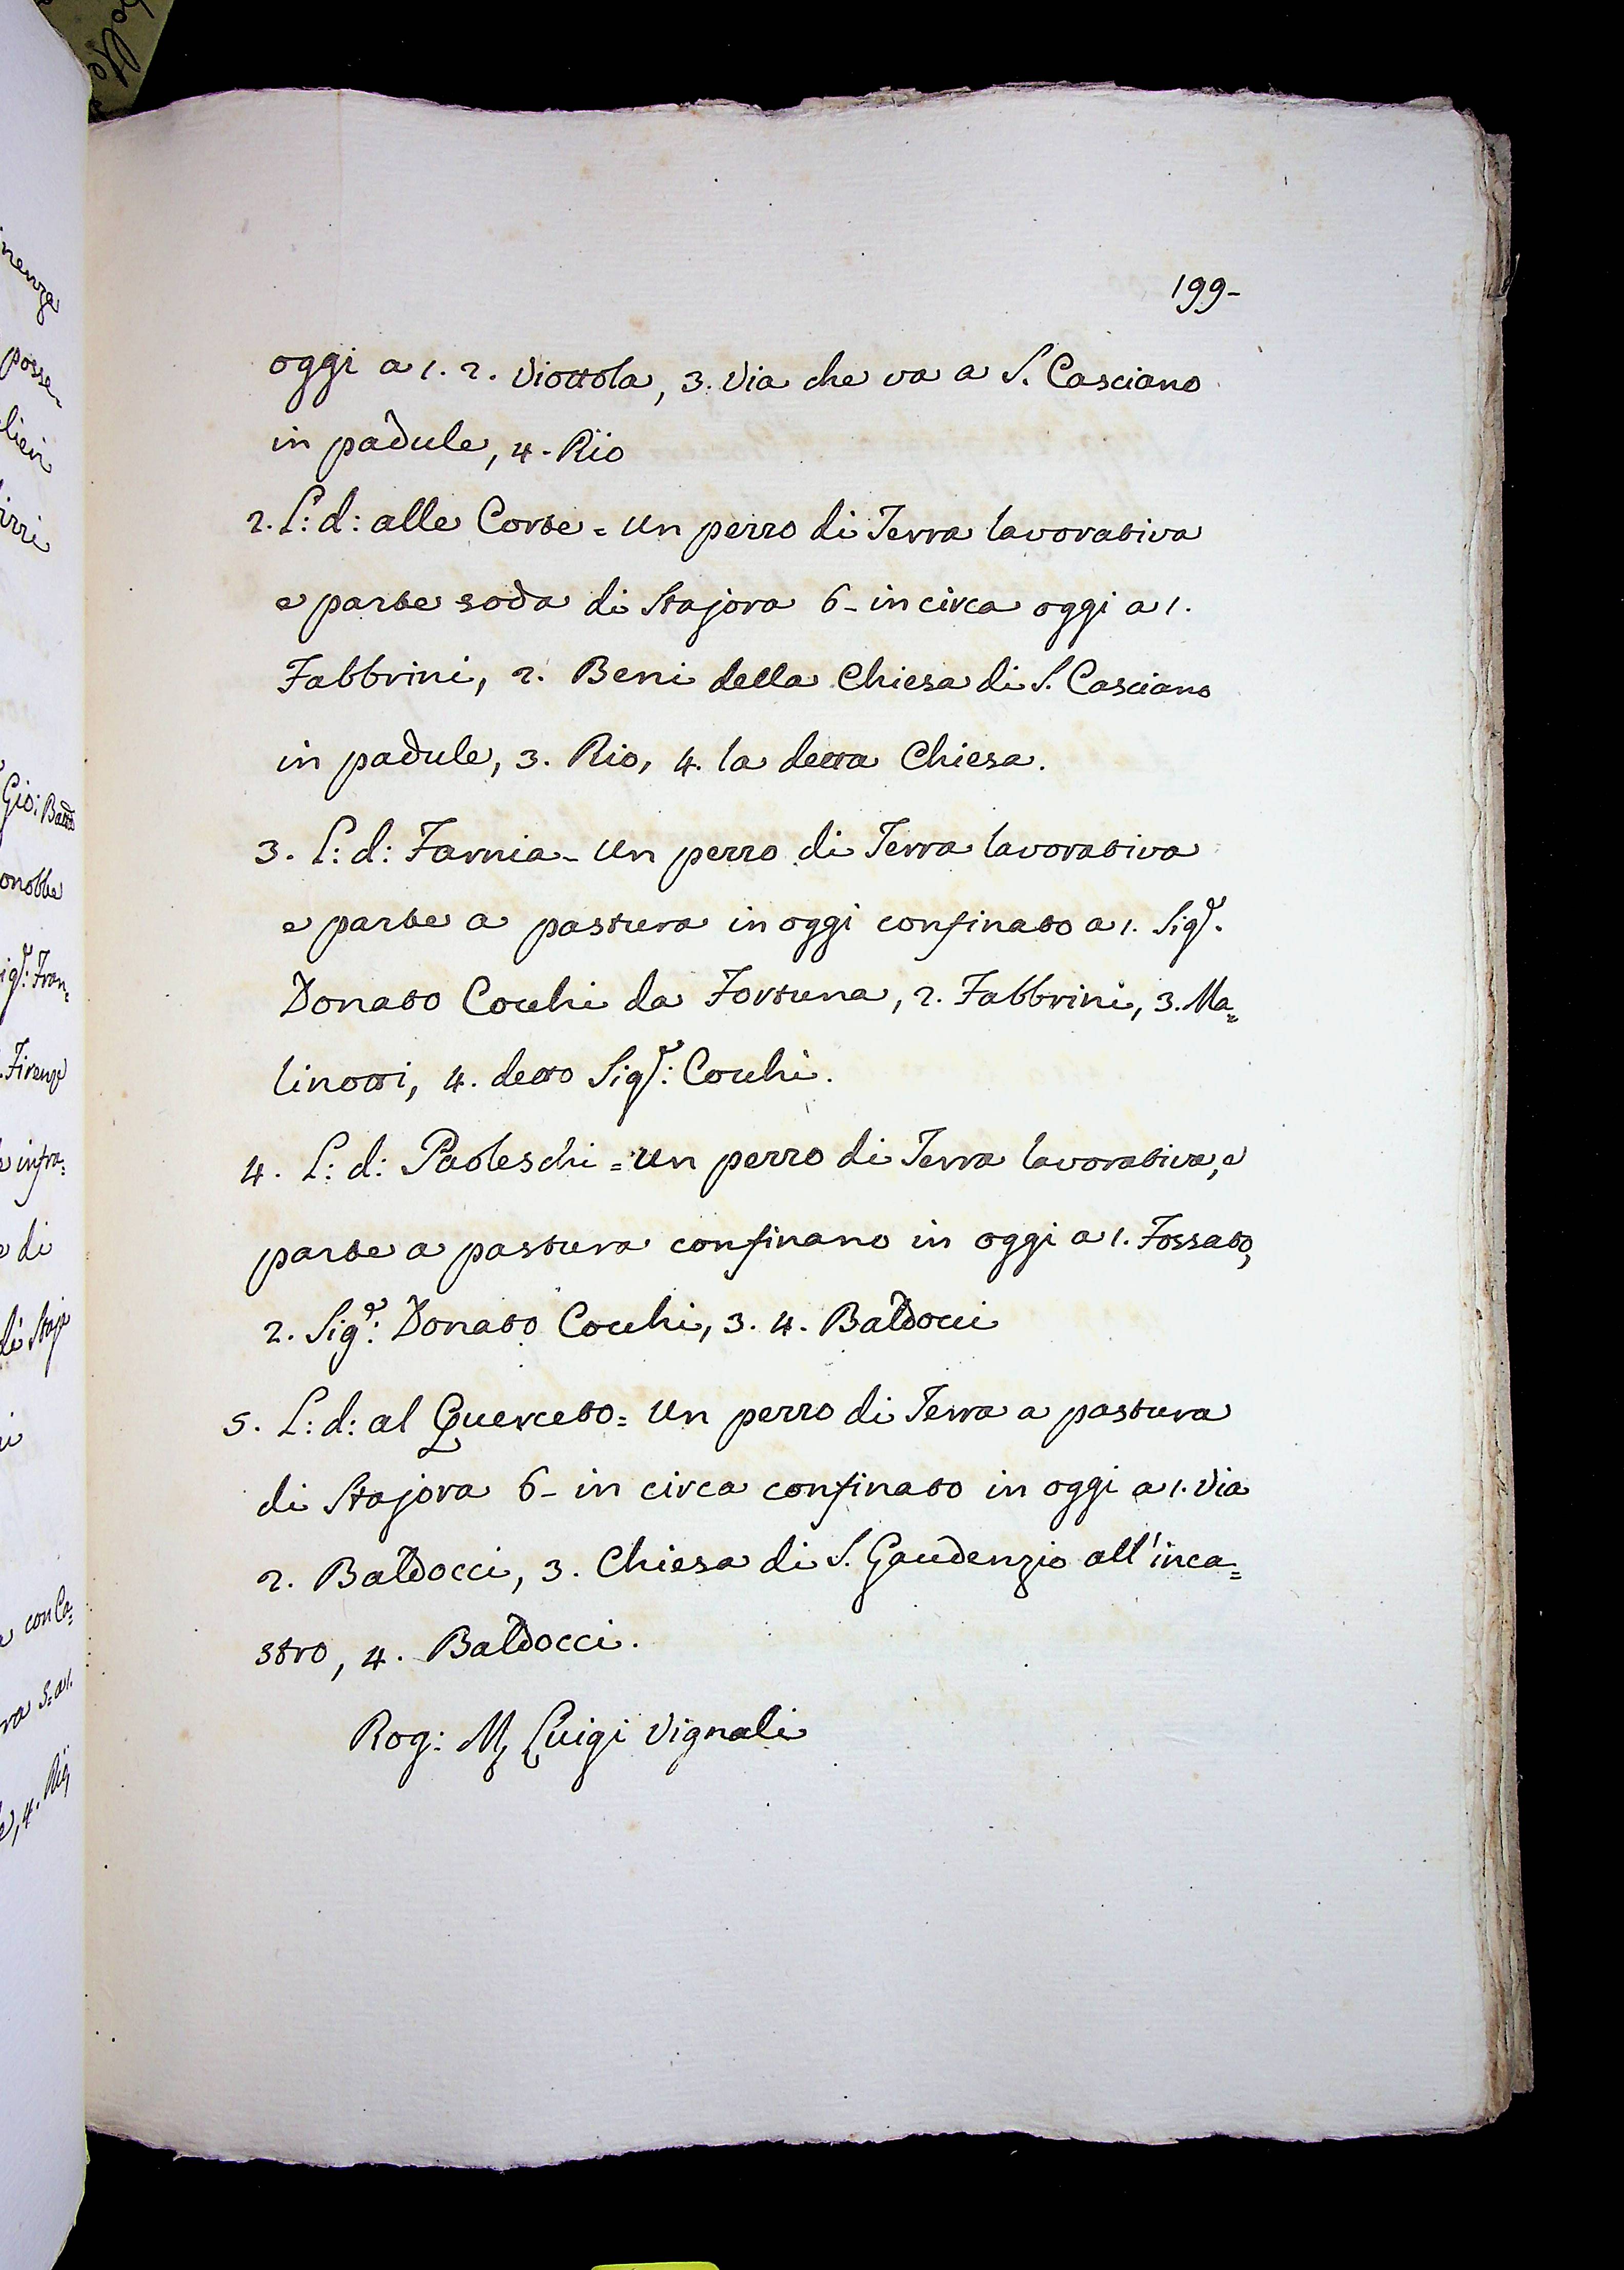 199-
oggi a 1. 2. Viottola, 3. Via che va a S. Casciano
in padule, 4. Rio
2. L: d: alle Corte = Un pezzo di Terra lavorativa
e parte soda di Stajora 6- in circa oggi a 1.
Fabbrini, 2. Beni della Chiesa di S. Casciano
in padule, 3. Rio, 4. la detta Chiesa.
3. L: d: Farnia - Un pezzo di Terra lavorativa
e parte a pastura in oggi confinato a 1. Sigr.
Donato Cocchi da Fortuna, 2. Fabbrini, 3. Ma=
linotti, 4. detto Sigr: Cocchi.
4. L: d: Paoleschi = Un pezzo di Terra lavorativa, e
parte a pastura confinano in oggi a 1. Fossato,
2. Sigr: Donato Cocchi, 3. 4. Baldocci
5. L: d: al Querceto = Un pezzo di Terra a pastura
di Stajora 6- in circa confinato in oggi a 1. Via
2. Baldocci, 3. Chiesa di S. Gaudenzio all'inca=
stro, 4. Baldocci.
Rog: M, Luigi Vignali